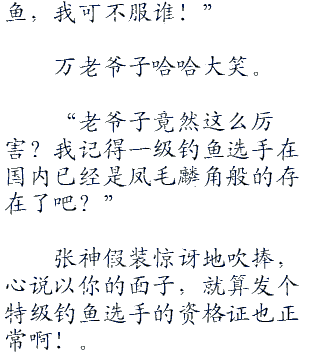 鱼，我可不服谁！”
万老爷子哈哈大笑。
“老爷子竟然这么厉
害？我记得一级钓鱼选手在
国内已经是凤毛麟角般的存
在了吧？”
张神假装惊讶地吹捧，
心说以你的面子，就算发个
特级钓鱼选手的资格证也正
常啊！。